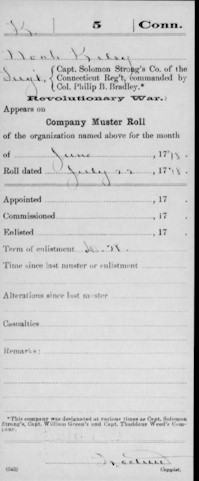 K. 5 Conn.
Noah Kelsy
Sergt., Capt. Solomon Strong's Co. of the
Connecticut Reg't, commanded by
Col. Philip B. Bradley.*
Revolutionary War.
Appears on
Company Muster Roll
of the organization named above for the month
of June, 1778.
Roll dated July 22, 1778.
Appointed, 17 .
Commissioned, 17 .
Enlisted, 17 .
Term of enlistment
Time since last muster or enlistment
Alterations since last muster
Casualties
Remarks:
*This company was designated at various times as Capt. Solomon
Strong's, Capt. William Green's and Capt. Thaddeus Weed's Com-
pany.
(545) Copyist.